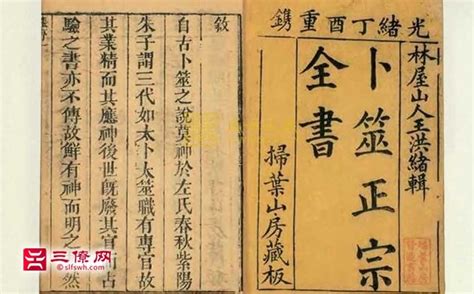 光緒丁酉重鐫
林屋山人王洪緒輯
卜筮正宗
全書
掃葉山房藏板
敘
自古卜筮之說莫神於左氏春秋紫陽
朱子謂三代如太卜太筮職有專官故
其業精而其應神後世旣廢其官而古
驗之書亦不傳故鮮有神而明之然
三僚网
slfswh.com